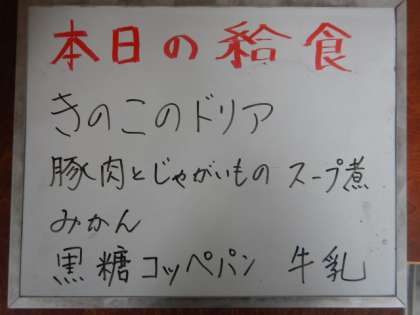 本日の給食
きのこのドリア
豚肉とじゃがいもの スープ煮
みかん
黒糖コッペパン 牛乳